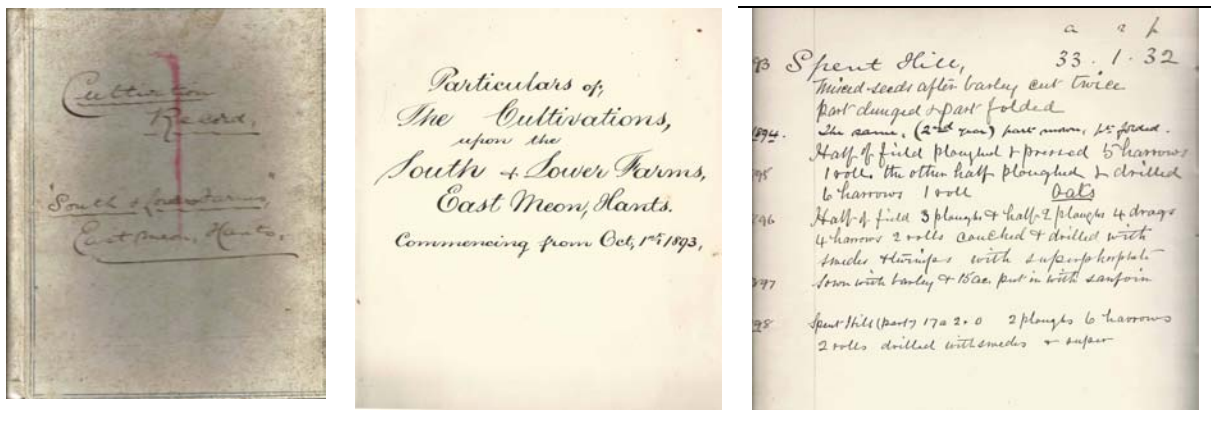 Cultivation
Record,
"South & Lower Farms,"
East Meon, Hants.
Particulars of,
The Cultivations,
upon the
South & Lower Farms,
East Meon, Hants.
Commencing from Oct, 1st, 1893,
a r p
93 Spent Hill, 33. 1. 32
Mixed seeds after barley cut twice
part dunged & part folded
1894. The same, (2nd year) part mown, pt folded.
Half of field ploughed & pressed 5 harrows
95 1 roll, the other half ploughed & drilled
6 harrows 1 roll Oats
96 Half of field 3 ploughs & half 2 ploughs 4 drags
4 harrows 2 rolls couched & drilled with
swedes & turnips with superphosphate
97 Sown with barley & 15 ac. put in with sanfoin
98 Spent Hill (part) 17a 2. 0 2 ploughs 6 harrows
2 rolls drilled with swedes & super